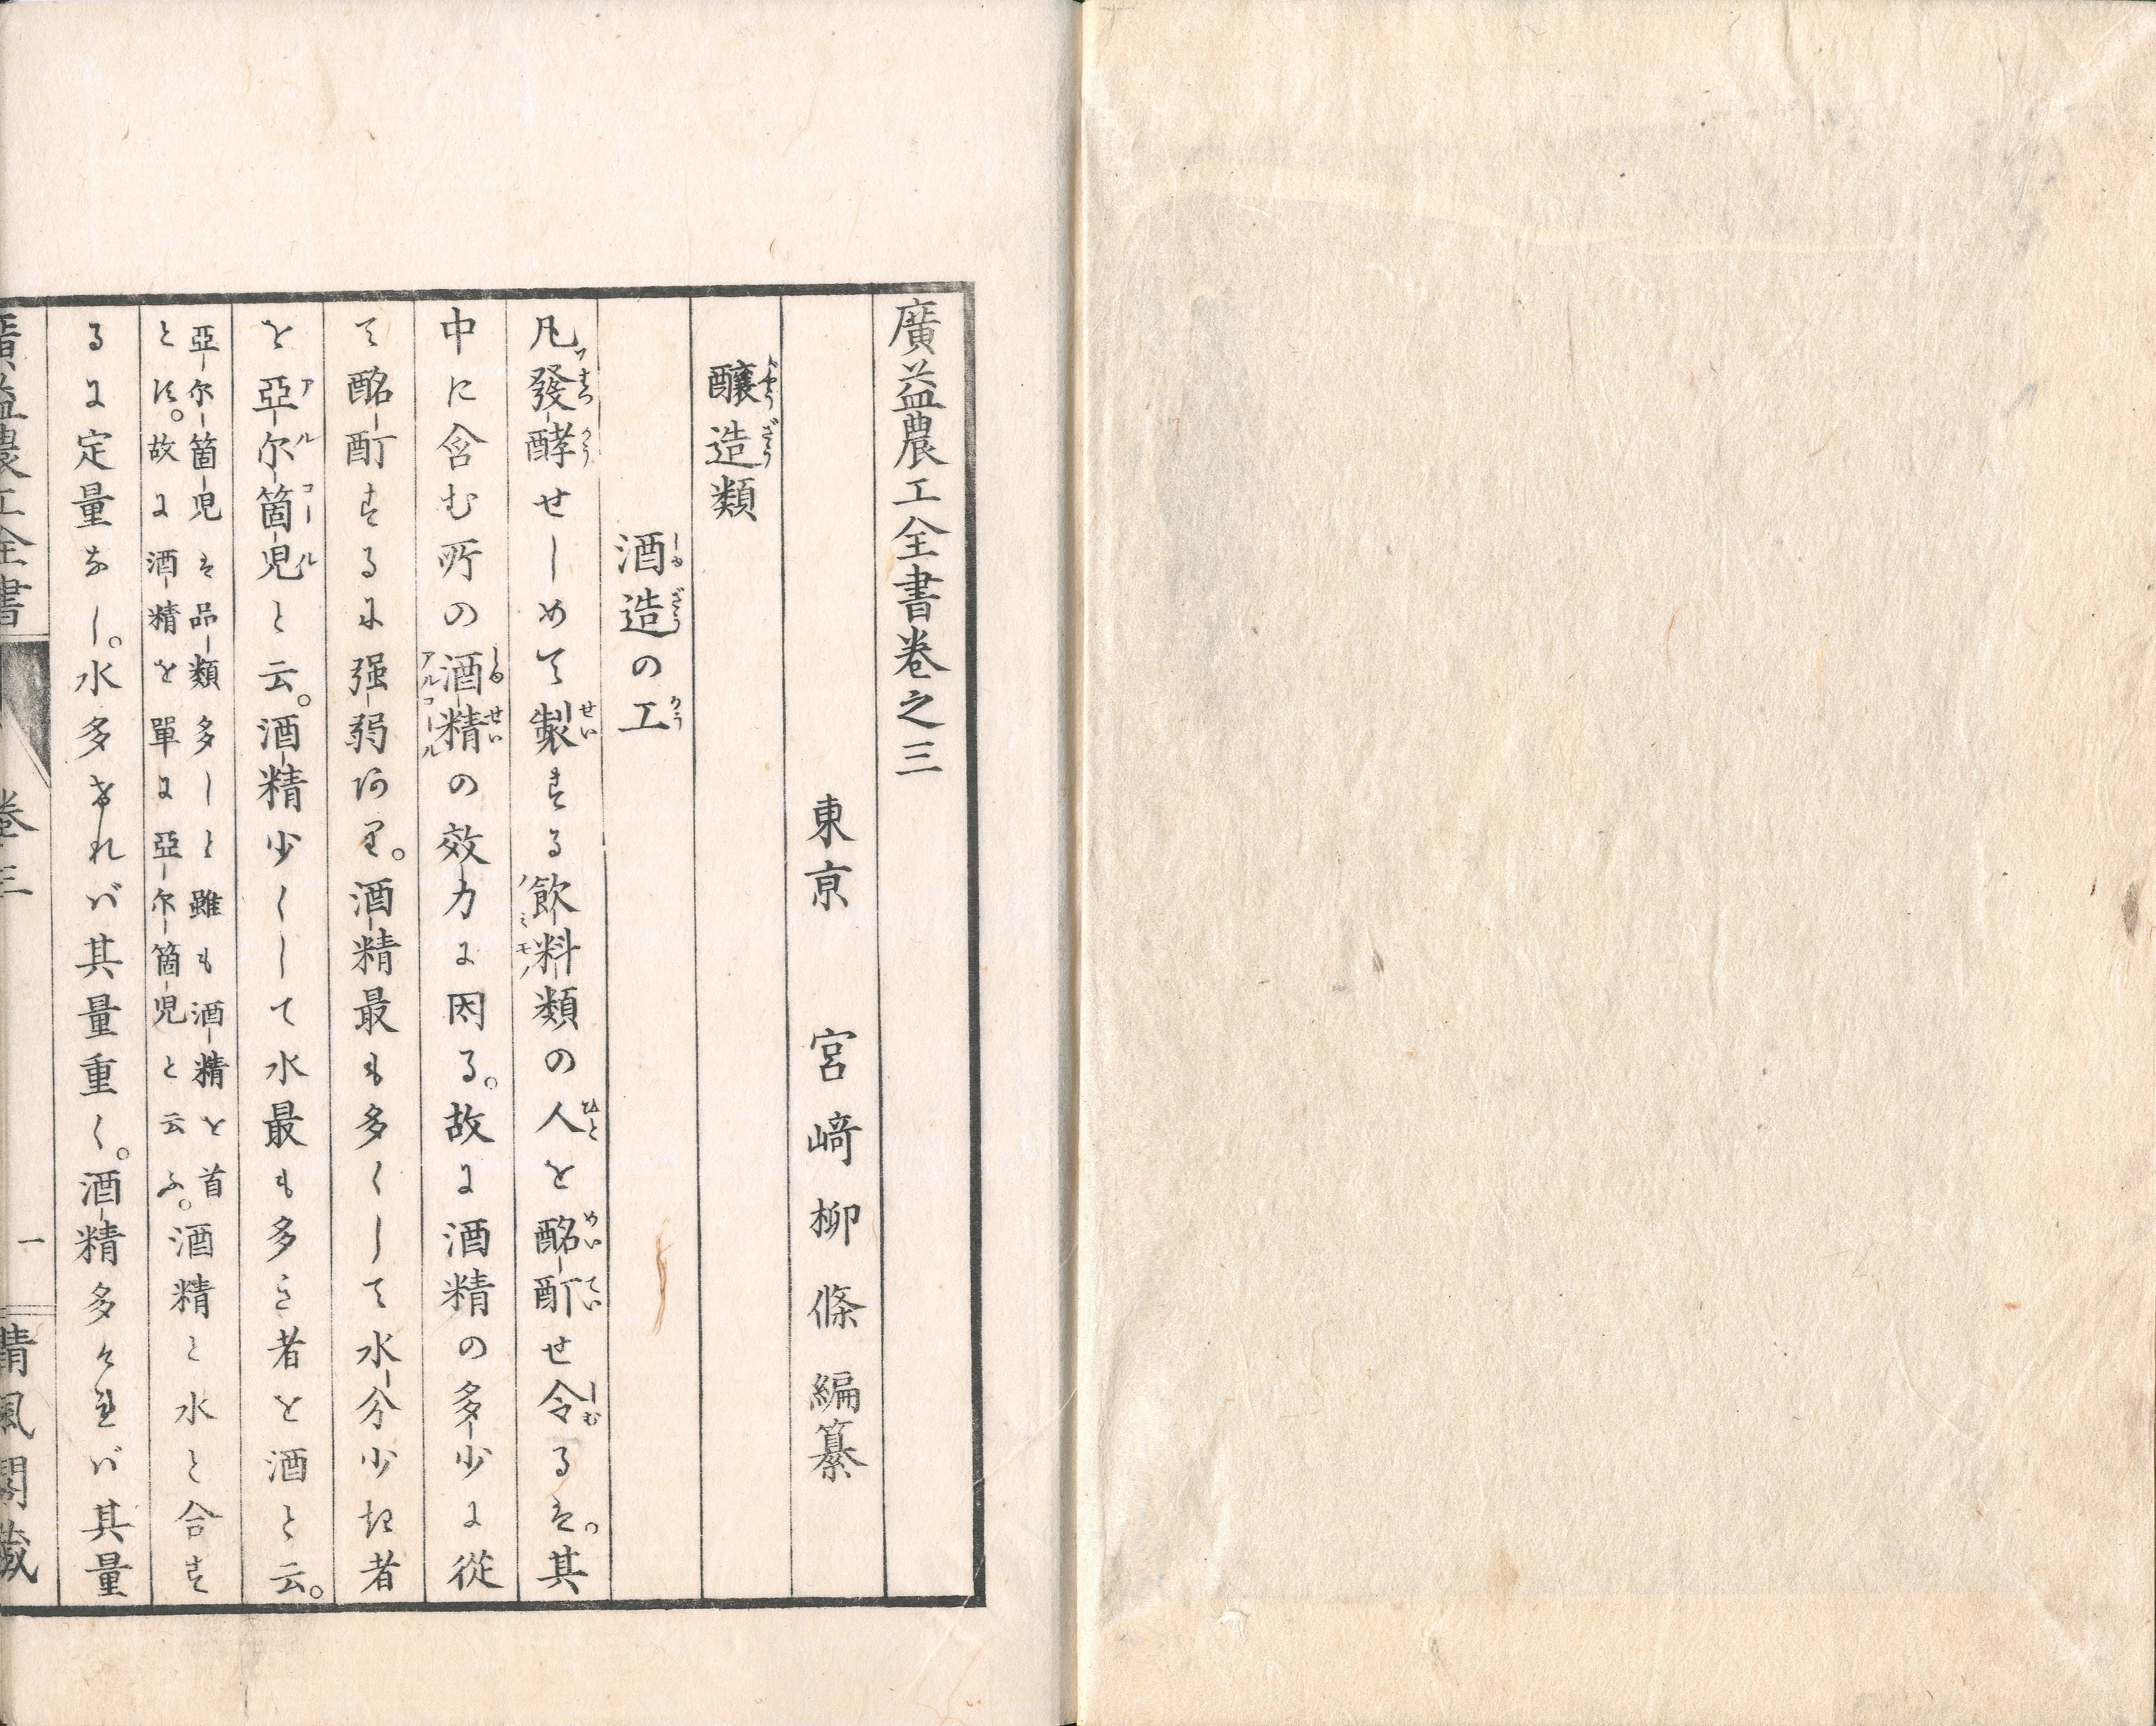 廣益農工全書卷之三
東京 宮﨑柳條編纂
醸造類
酒造の工
凡發酵せしめて製する飲料類の人を酩酊せ令るは。其
中に含む所の酒精の效力に因る。故に酒精の多少に從
て酩酊するに强弱あり。酒精最も多くして水分少き者
を亞尔箇児と云。酒精少くして水最も多き者を酒と云。
亞尔箇児は品類多しと雖も酒精を首
とす。故に酒精を單に亞尔箇児と云ふ。酒精と水と合す
るに定量なし。水多ければ其量重く。酒精多ければ其量
廣益農工全書 卷三 一 晴風閣藏